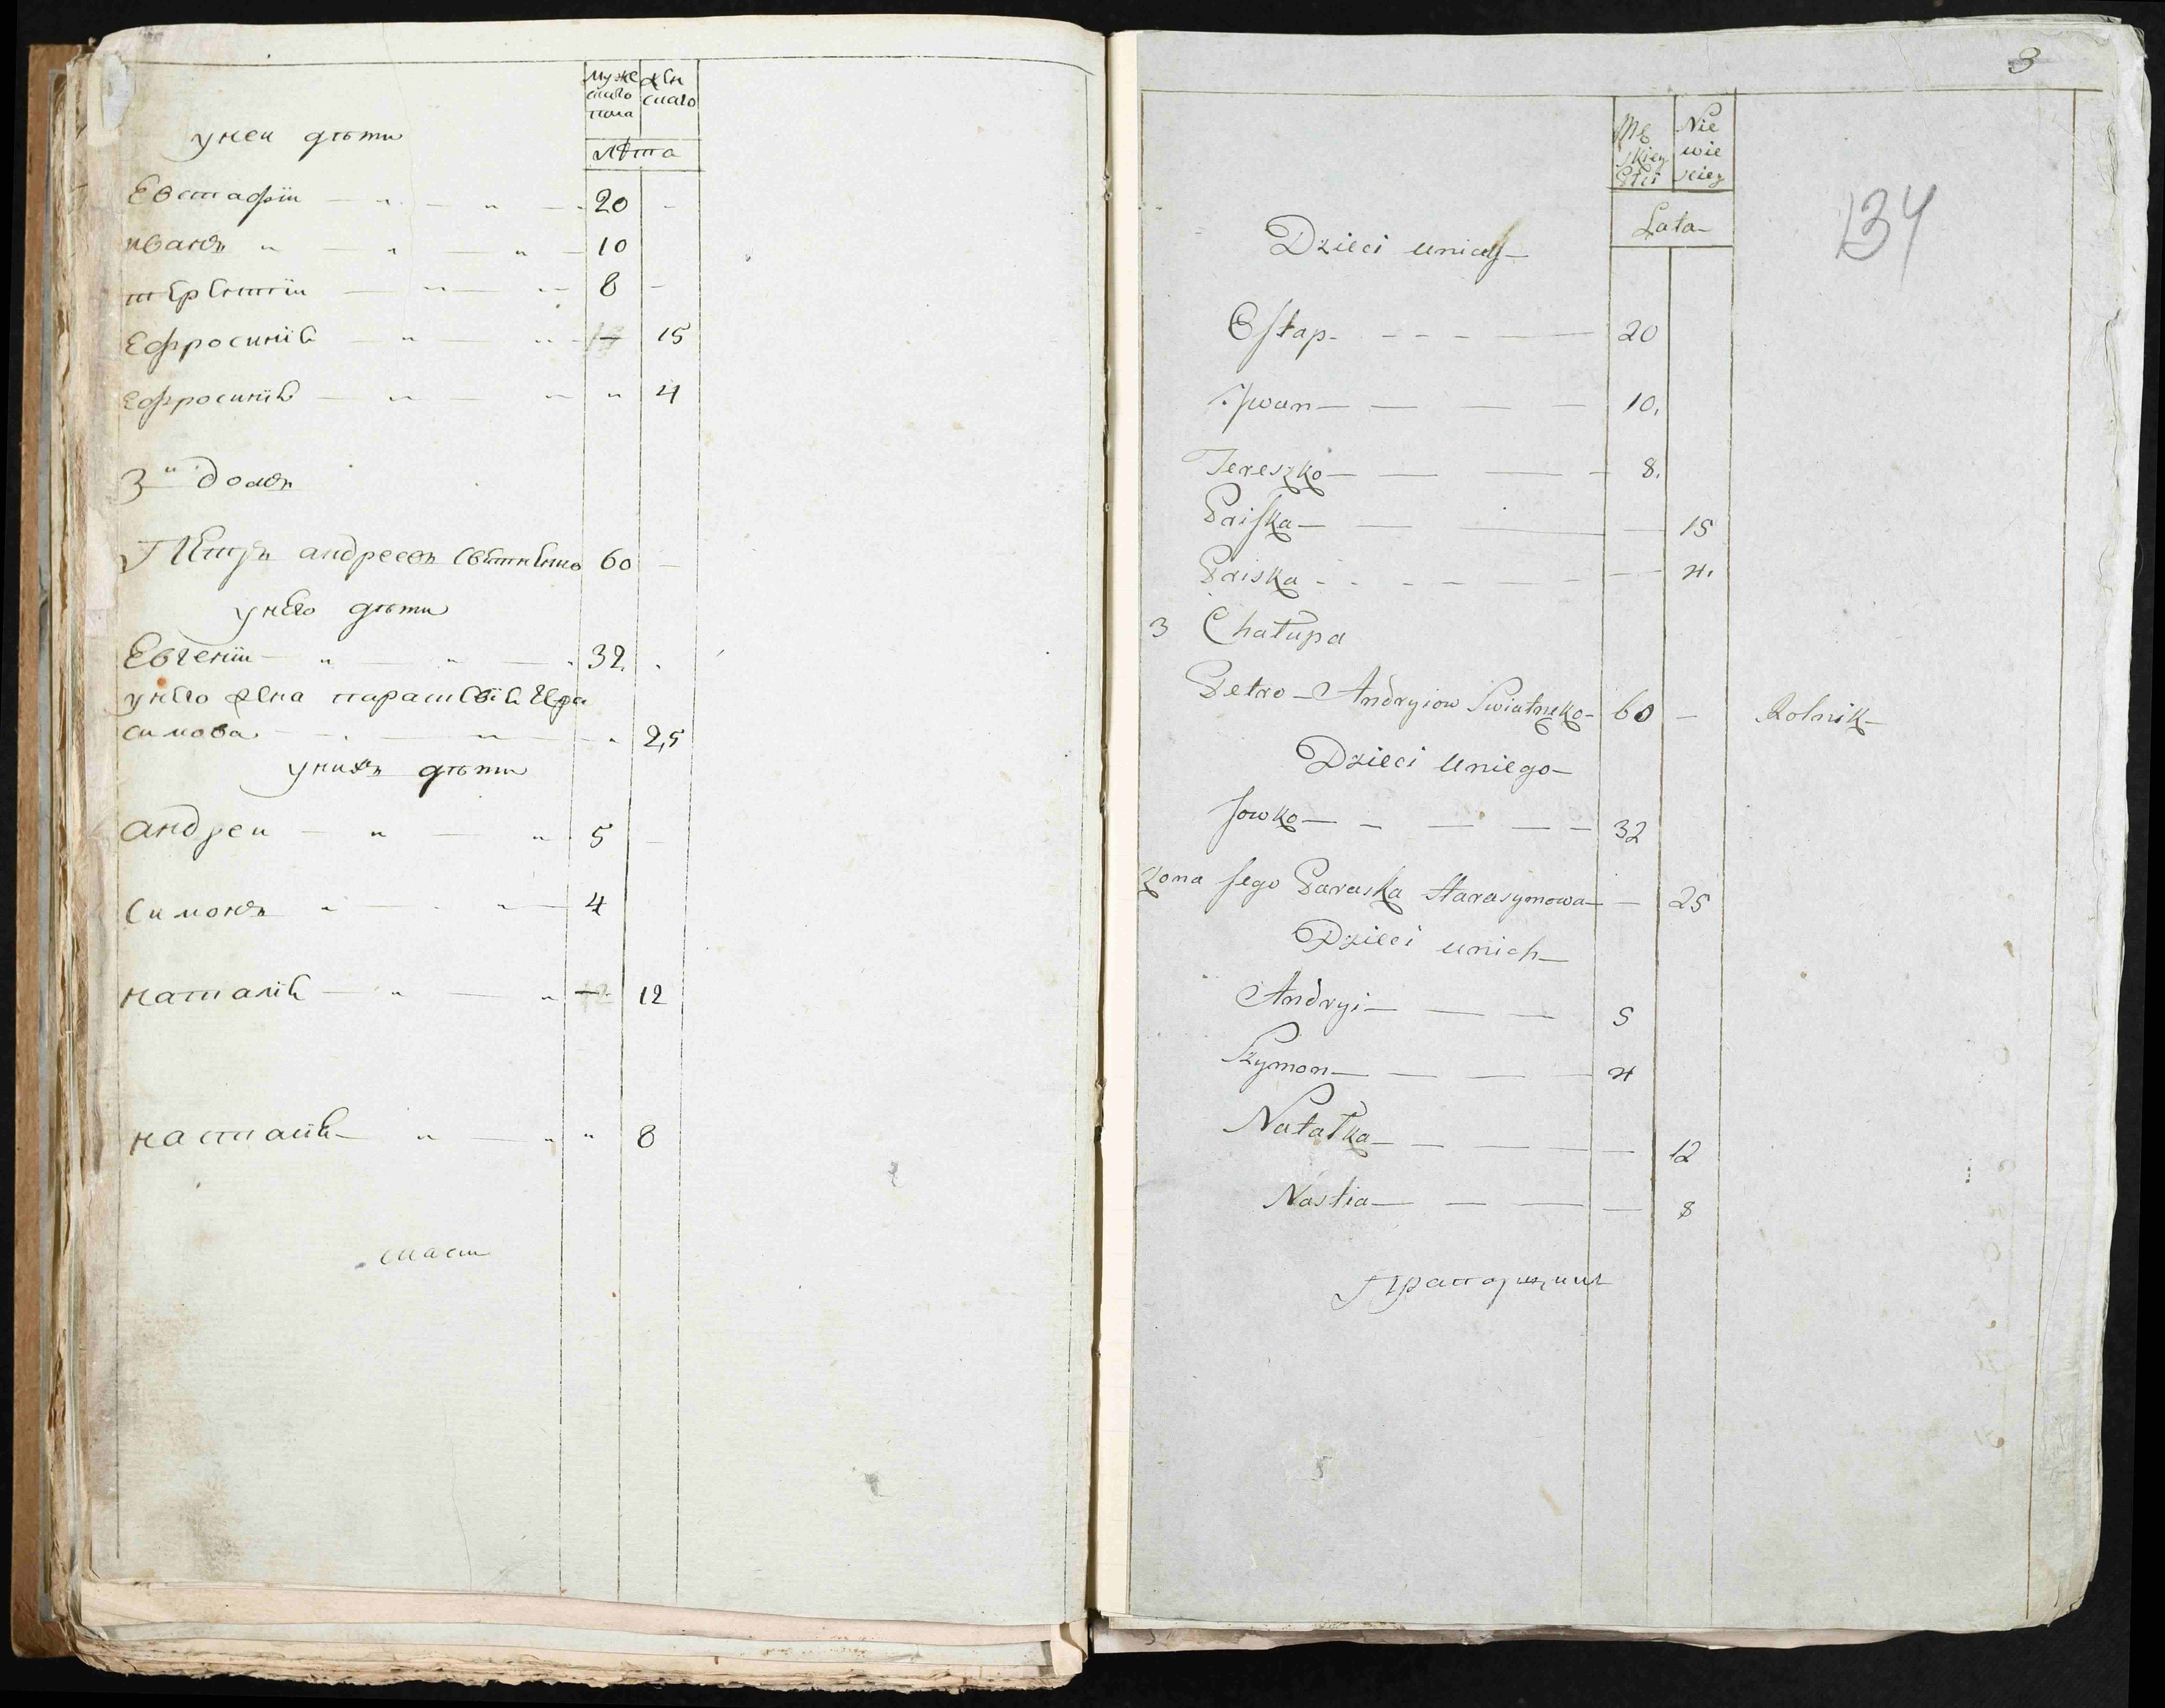 муже жен
скаго скаго
пола
лѣта
у неи дѣти
Евстафіи 20 -
иванъ 10
терентіи 8 -
Ефросиніѣ - 15
ефросиніѣ 4
3и домъ
Петръ андреевъ 60 -
у него дѣти
Евгеніи 32
у него жена параскевіѣ Гера
симова 25
у нихъ дѣти
андреи 5
симонъ 4
наталіѣ - 12
настасіѣ 8
3
Mę Nie
skiey wie
Płci sciey
Lata
134
Dzieci u niey
Ostap 20
Iwan 10.
Tereszko 8.
Priska 15
Priska 4.
3 Chałupa
Petro Andryiow Swiatneko 60 - Rolnik
Dzieci u niego
Jowko 32
Zona Jego Paraska Harasymowa 25
Dzieci u nich
Andryi 5
Szymon 4
Natałka 12
Nastia 8
Прапорщикъ